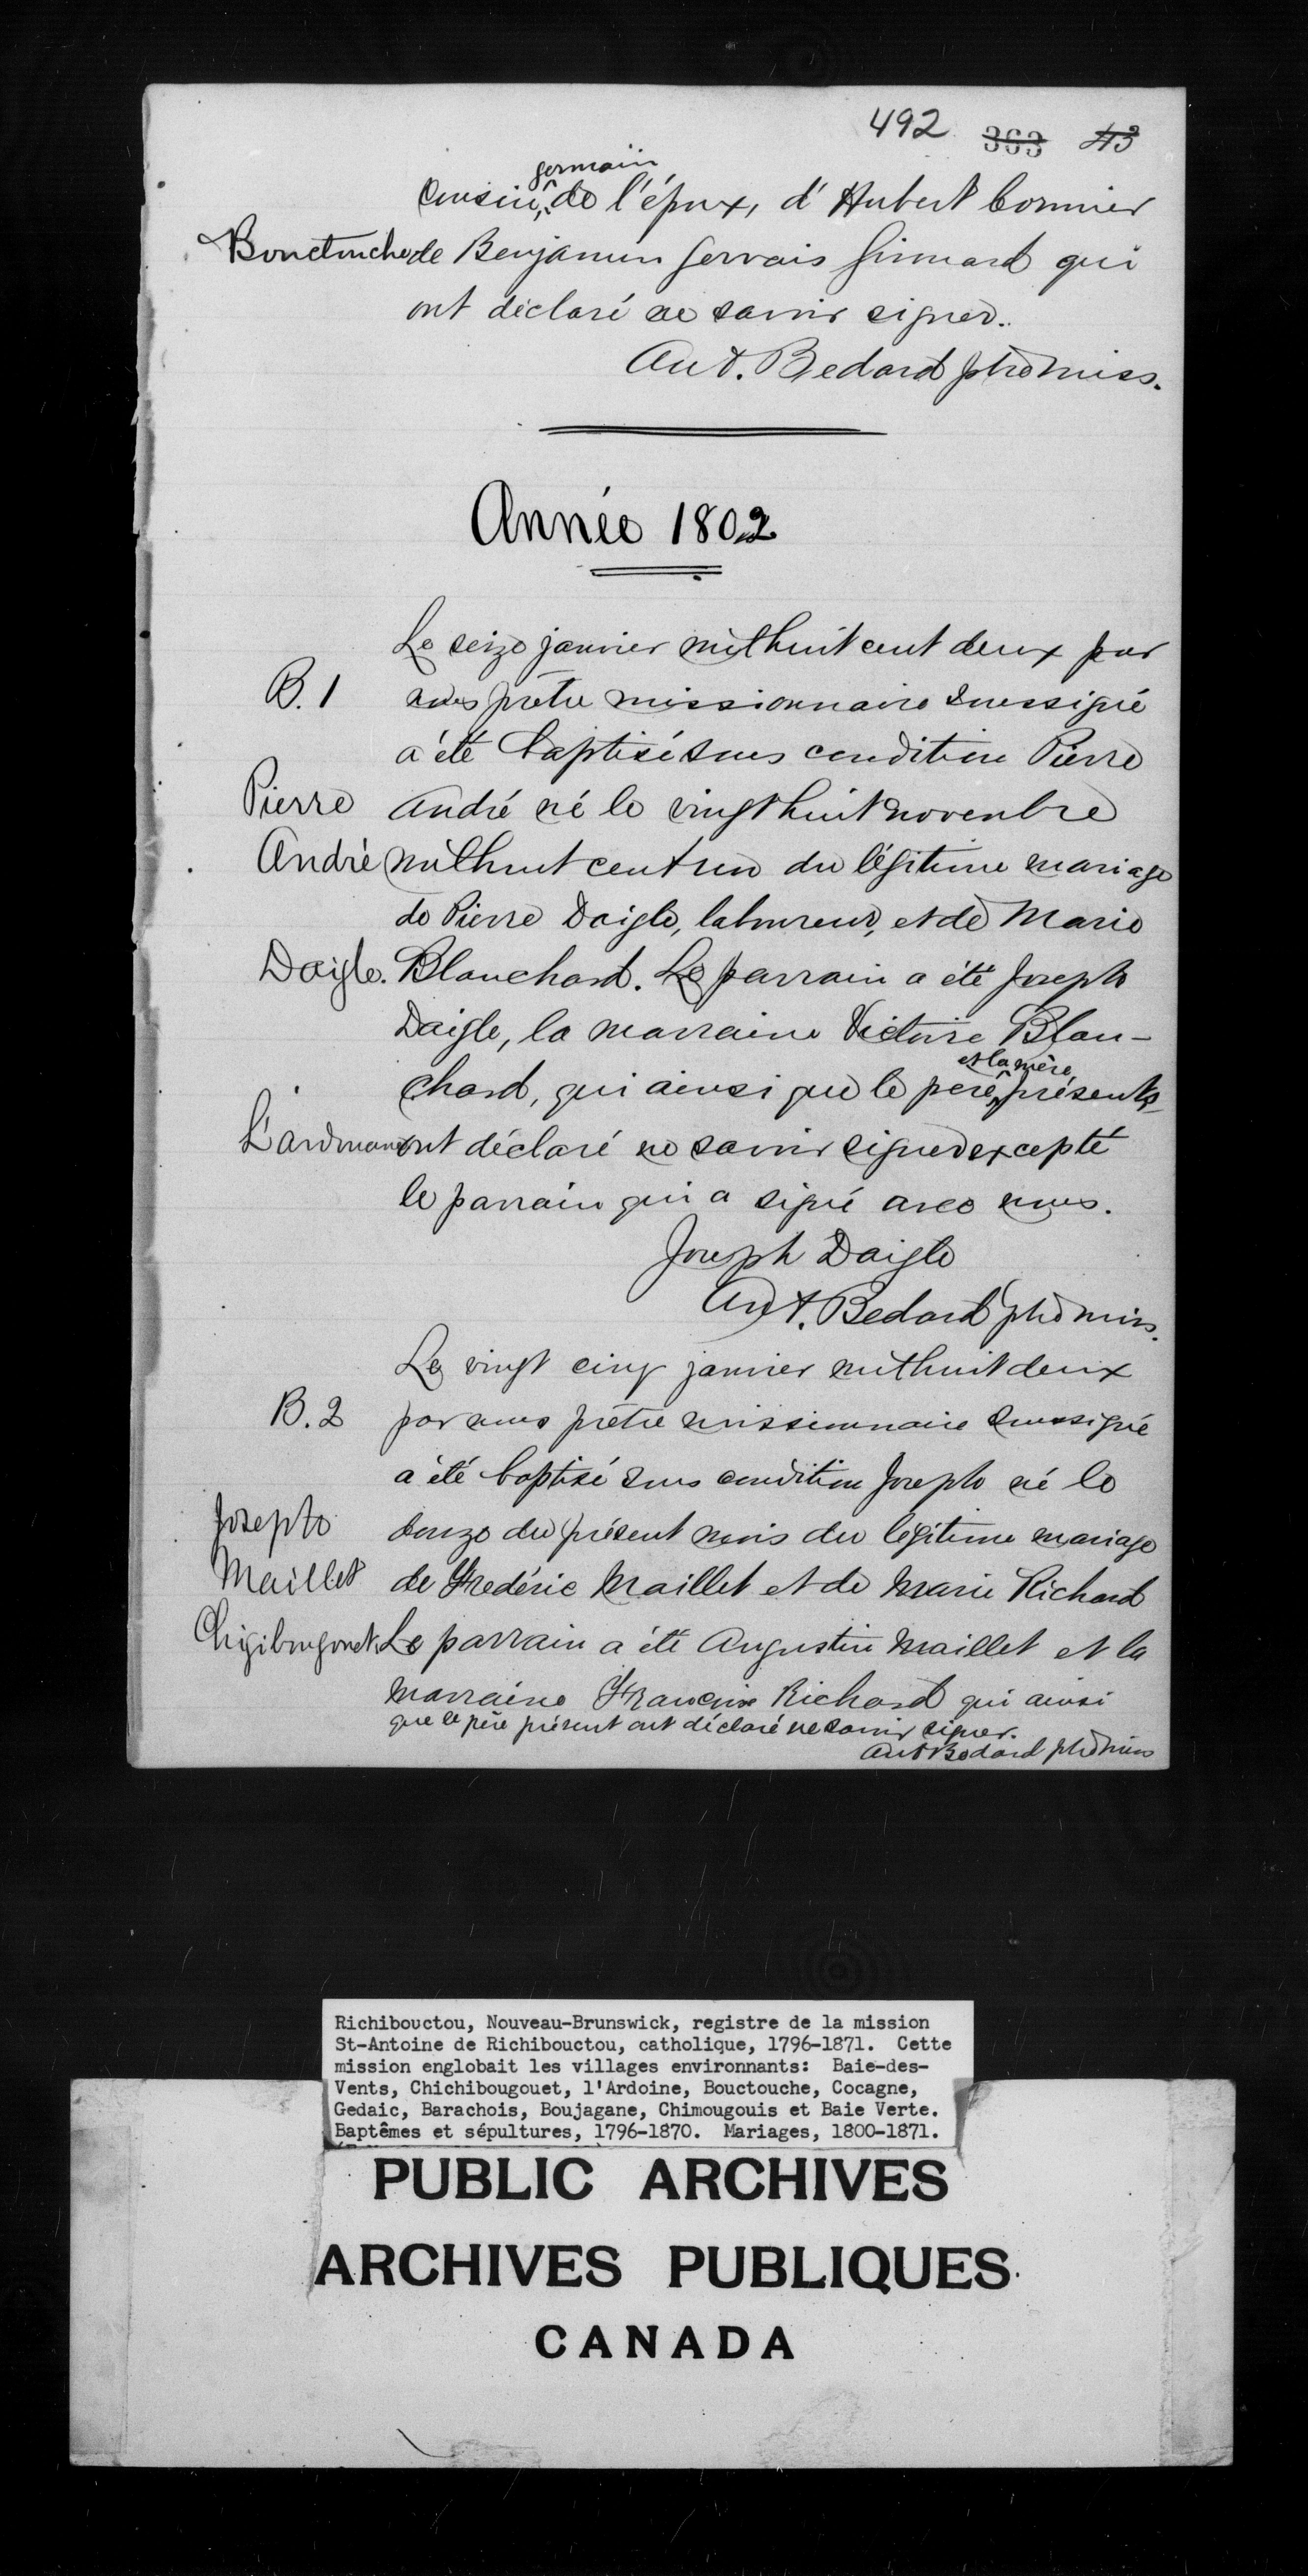 492 363 43
germain
cousin, de l'époux, d'Hubert Cormier
Bouctouche de Benjamin Gervais Girouard qui
ont déclaré ne savoir signer.
Ant. Bedard ptre miss.
Année 1802
Le seize janvier mil huit cent deux par
B. 1 nous prêtre missionnaire soussigné
a été baptisé sous condition Pierre
Pierre André né le vingt huit novembre
André mil huit cent un du légitime mariage
de Pierre Daigle, laboureur, et de Marie
Daigle. Blanchard. Le parrain a été Joseph
Daigle, la marraine Victoire Blan-
et la mère,
chard, qui ainsi que le père, présents
L'ardouane ont déclaré ne savoir signer excepté
le parrain qui a signé avec nous.
Joseph Daigle
Ant. Bedard ptre miss.
Le vingt cinq janvier mil huit deux
B. 2 par nous prêtre missionnaire soussigné
a été baptisé sous condition Joseph né le
Joseph douze du présent mois du légitime mariage
Maillet de Frédéric Maillet et de Marie Richard
Chigibougouet. Le parrain a été Augustin Maillet et la
marraine Françoise Richard qui ainsi
que le père présent ont déclaré ne savoir signer.
Ant Bedard ptre miss
Richibouctou, Nouveau-Brunswick, registre de la mission
St-Antoine de Richibouctou, catholique, 1796-1871. Cette
mission englobait les villages environnants: Baie-des-
Vents, Chichibougouet, l'Ardoine, Bouctouche, Cocagne,
Gedaic, Barachois, Boujagane, Chimougouis et Baie Verte.
Baptêmes et sépultures, 1796-1870. Mariages, 1800-1871.
PUBLIC ARCHIVES
ARCHIVES PUBLIQUES
CANADA